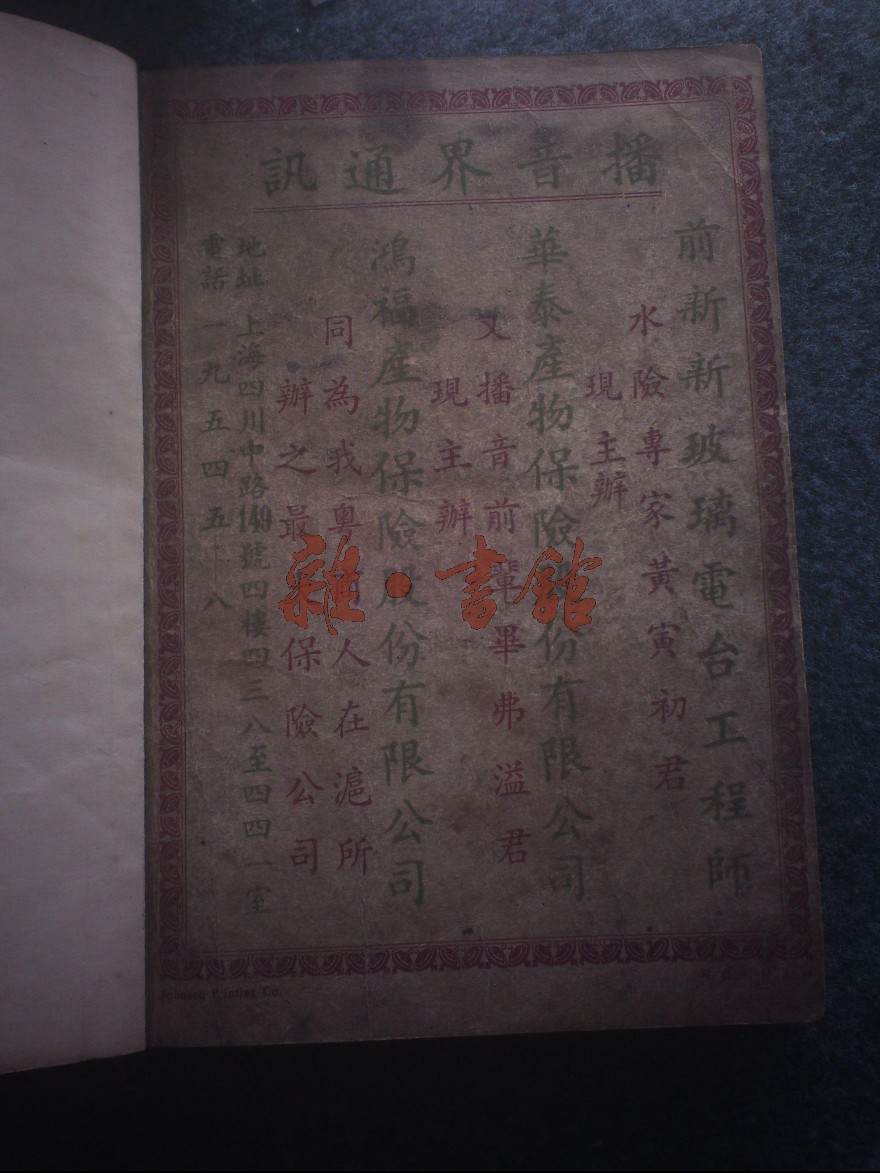 播音界通訊
前新新玻璃電台工程師
水險專家黃寅初君
現主辦
華泰產物保險股份有限公司
又播音前輩畢弗溢君
現主辦
鴻福產物保險股份有限公司
同為我粵商人在滬所
辦之最 保險公司
地址 上海四川中路149號四樓四三八至四四一室
電話 一九五四五 八
Johnson Printing Co.
雜·書館